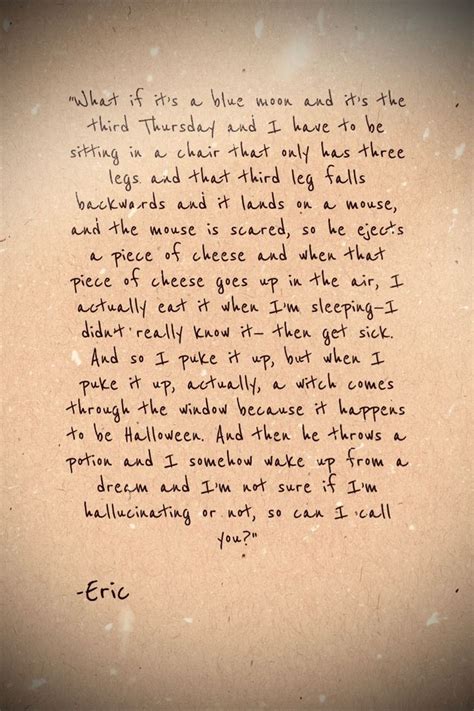 "What if it's a blue moon and it's the
third Thursday and I have to be
sitting in a chair that only has three
legs and that third leg falls
backwards and it lands on a mouse,
and the mouse is scared, so he ejects
a piece of cheese and when that
piece of cheese goes up in the air, I
actually eat it when I'm sleeping—I
didn't really know it— then get sick.
And so I puke it up, but when I
puke it up, actually, a witch comes
through the window because it happens
to be Halloween. And then he throws a
potion and I somehow wake up from a
dream and I'm not sure if I'm
hallucinating or not, so can I call
you?"
-Eric